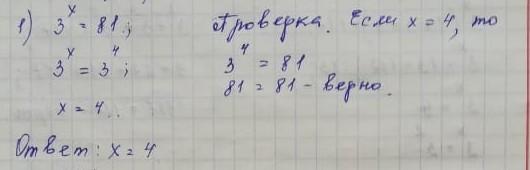 1) 3^x = 81;
3^x = 3^4;
x = 4.
Проверка. Если x = 4, то
3^4 = 81
81 = 81 - верно.
Ответ: x = 4